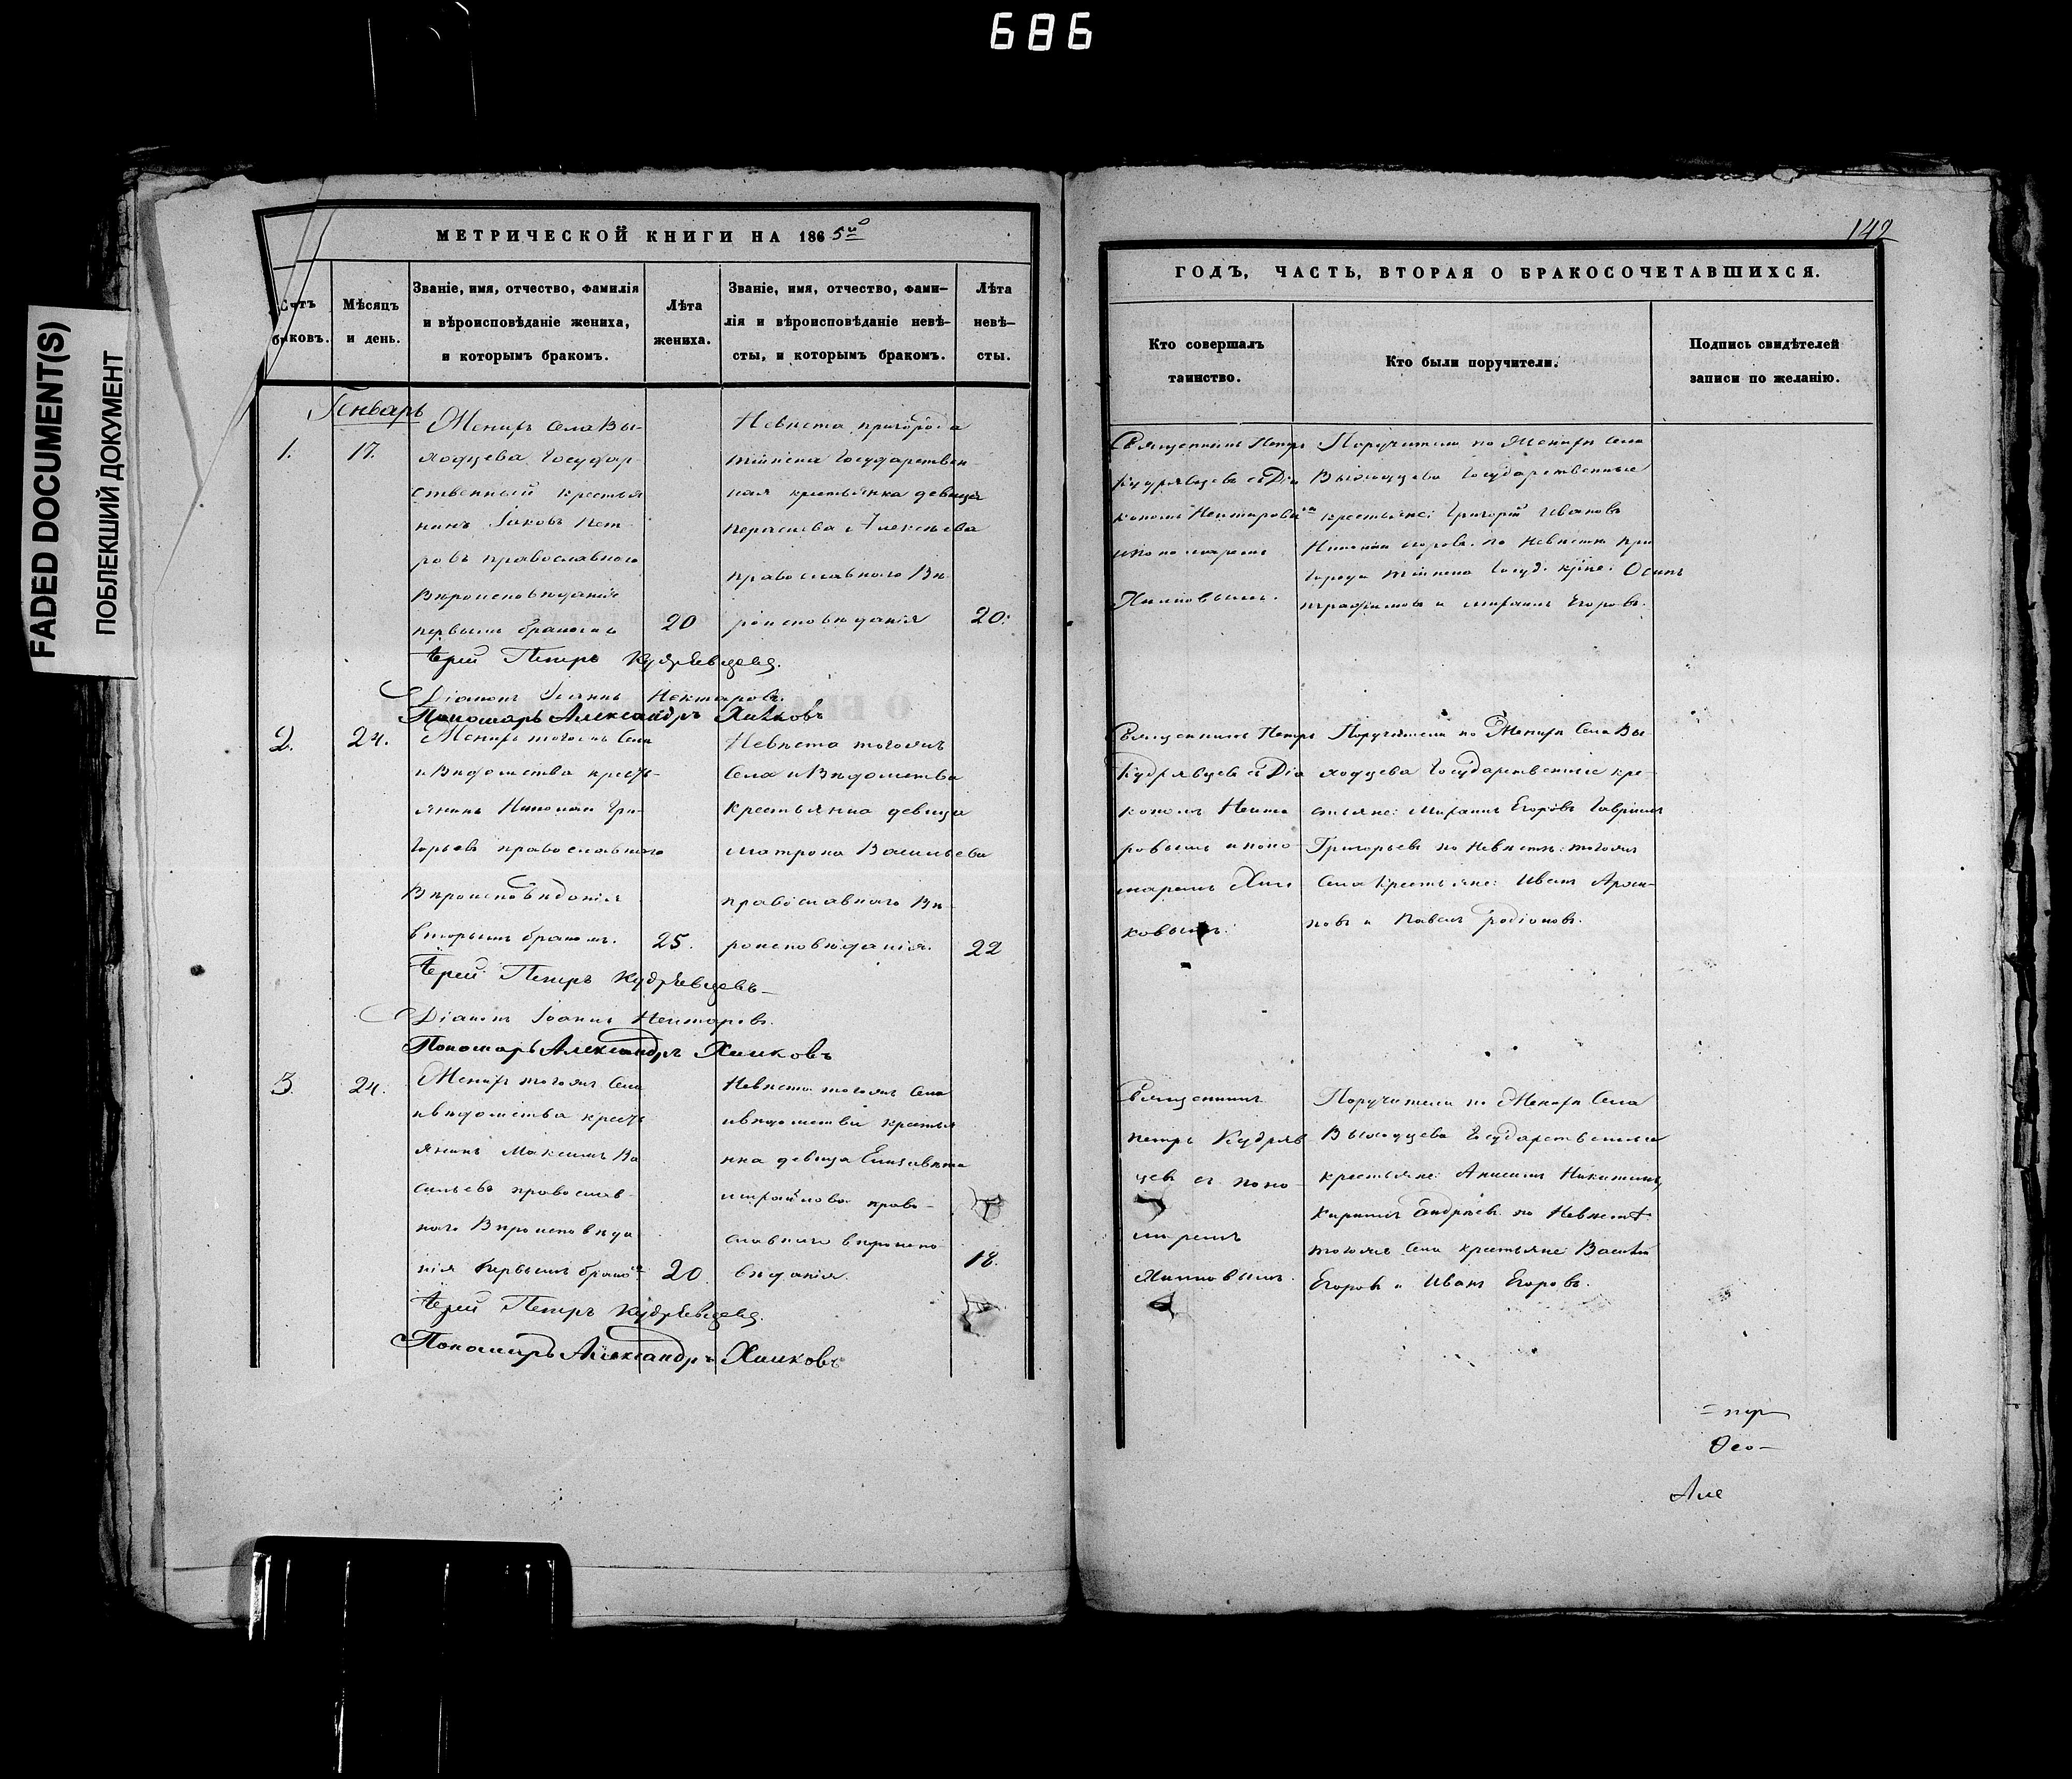 686
FADED DOCUMENT(S)
ПОБЛЕКШИЙ ДОКУМЕНТ
МЕТРИЧЕСКОЙ КНИГИ НА 1865го
Счетъ браковъ.
Мѣсяцъ и день.
Званіе, имя, отчество, фамилія
и вѣроисповѣданіе жениха,
и которымъ бракомъ.
Лѣта
жениха.
Званіе, имя, отчество, фами-
лія и вѣроисповѣданіе невѣ-
сты, и которымъ бракомъ.
Лѣта
невѣ-
сты.
Генварь
1.
17.
Женихъ Села Вы-
ходцева Государ-
ственный крестья
нинъ Іаковъ Пет-
ровъ православнаго
Вѣроисповѣданія
первымъ бракомъ
20
Невѣста пригорода
Государствен
ная крестьянка девица
Алексѣева
православнаго Вѣ
роисповѣданія
20.
Іерей Петръ Кудрявцевъ.
Діаконъ Іоаннъ Нектаровъ.
Пономарь Александръ Хилковъ
2.
24.
Женихъ тогожъ Села
и Вѣдомства кресть-
янинъ Николай Гри-
горьевъ православнаго
Вѣроисповѣданія
вторымъ бракомъ.
25.
Невѣста тогожъ
Села и Вѣдомства
крестьянка девица
Матрона Васильева
православнаго Вѣ-
роисповѣданія.
22
Іерей Петръ Кудрявцевъ
Діаконъ Іоаннъ Нектаровъ.
Пономарь Александръ Хилковъ
3.
24.
Женихъ тогожъ Села
и вѣдомства кресть
янинъ Максимъ Ва
сильевъ православ-
наго Вѣроисповѣда
нія первымъ бракомъ
20.
Невѣста тогожъ Села
и вѣдомства крестья
нка девица Елизавета
Михайлова право-
славнаго вѣроиспо
вѣданія.
18.
Іерей Петръ Кудрявцевъ.
Пономарь Александръ Хилковъ
142
ГОДЪ, ЧАСТЬ, ВТОРАЯ О БРАКОСОЧЕТАВШИХСЯ.
Кто совершалъ
таинство.
Кто были поручители.
Подпись свидѣтелей
записи по желанію.
Священникъ Петръ
Кудрявцевъ съ Діа
кономъ Нектаровымъ
и пономаремъ
Хилковымъ.
Поручители по Женихѣ Села
Выходцева Государственные
крестьяне: Григорій Ивановъ
Егоровъ. по Невѣстѣ при
города Госуд. кр-не: Осипъ
и Михаилъ Егоровъ.
Священникъ Петръ
Кудрявцевъ съ Діа
кономъ Некта
ровымъ и поно-
маремъ Хил
ковымъ.
Поручители по Женихѣ Села Вы-
ходцева Государственные кре-
стьяне: Михаилъ Егоровъ Гавріилъ
Григорьевъ по Невѣстѣ: тогожъ
Села крестьяне: Иванъ
и Павелъ Родіоновъ.
Священникъ
Петръ Кудряв
цевъ съ поно-
маремъ
Хилковымъ.
Поручители по Женихѣ Села
Выходцева Государственные
крестьяне: Анисимъ Никитинъ,
Кириллъ Андреевъ по Невѣстѣ
тогожъ Села крестьяне Василій
Егоровъ и Иванъ Егоровъ.